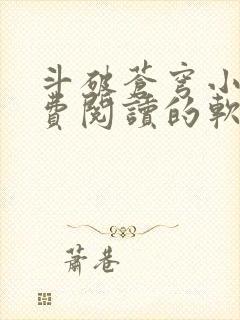 斗破蒼穹小
費閱讀的軟
蕭巷